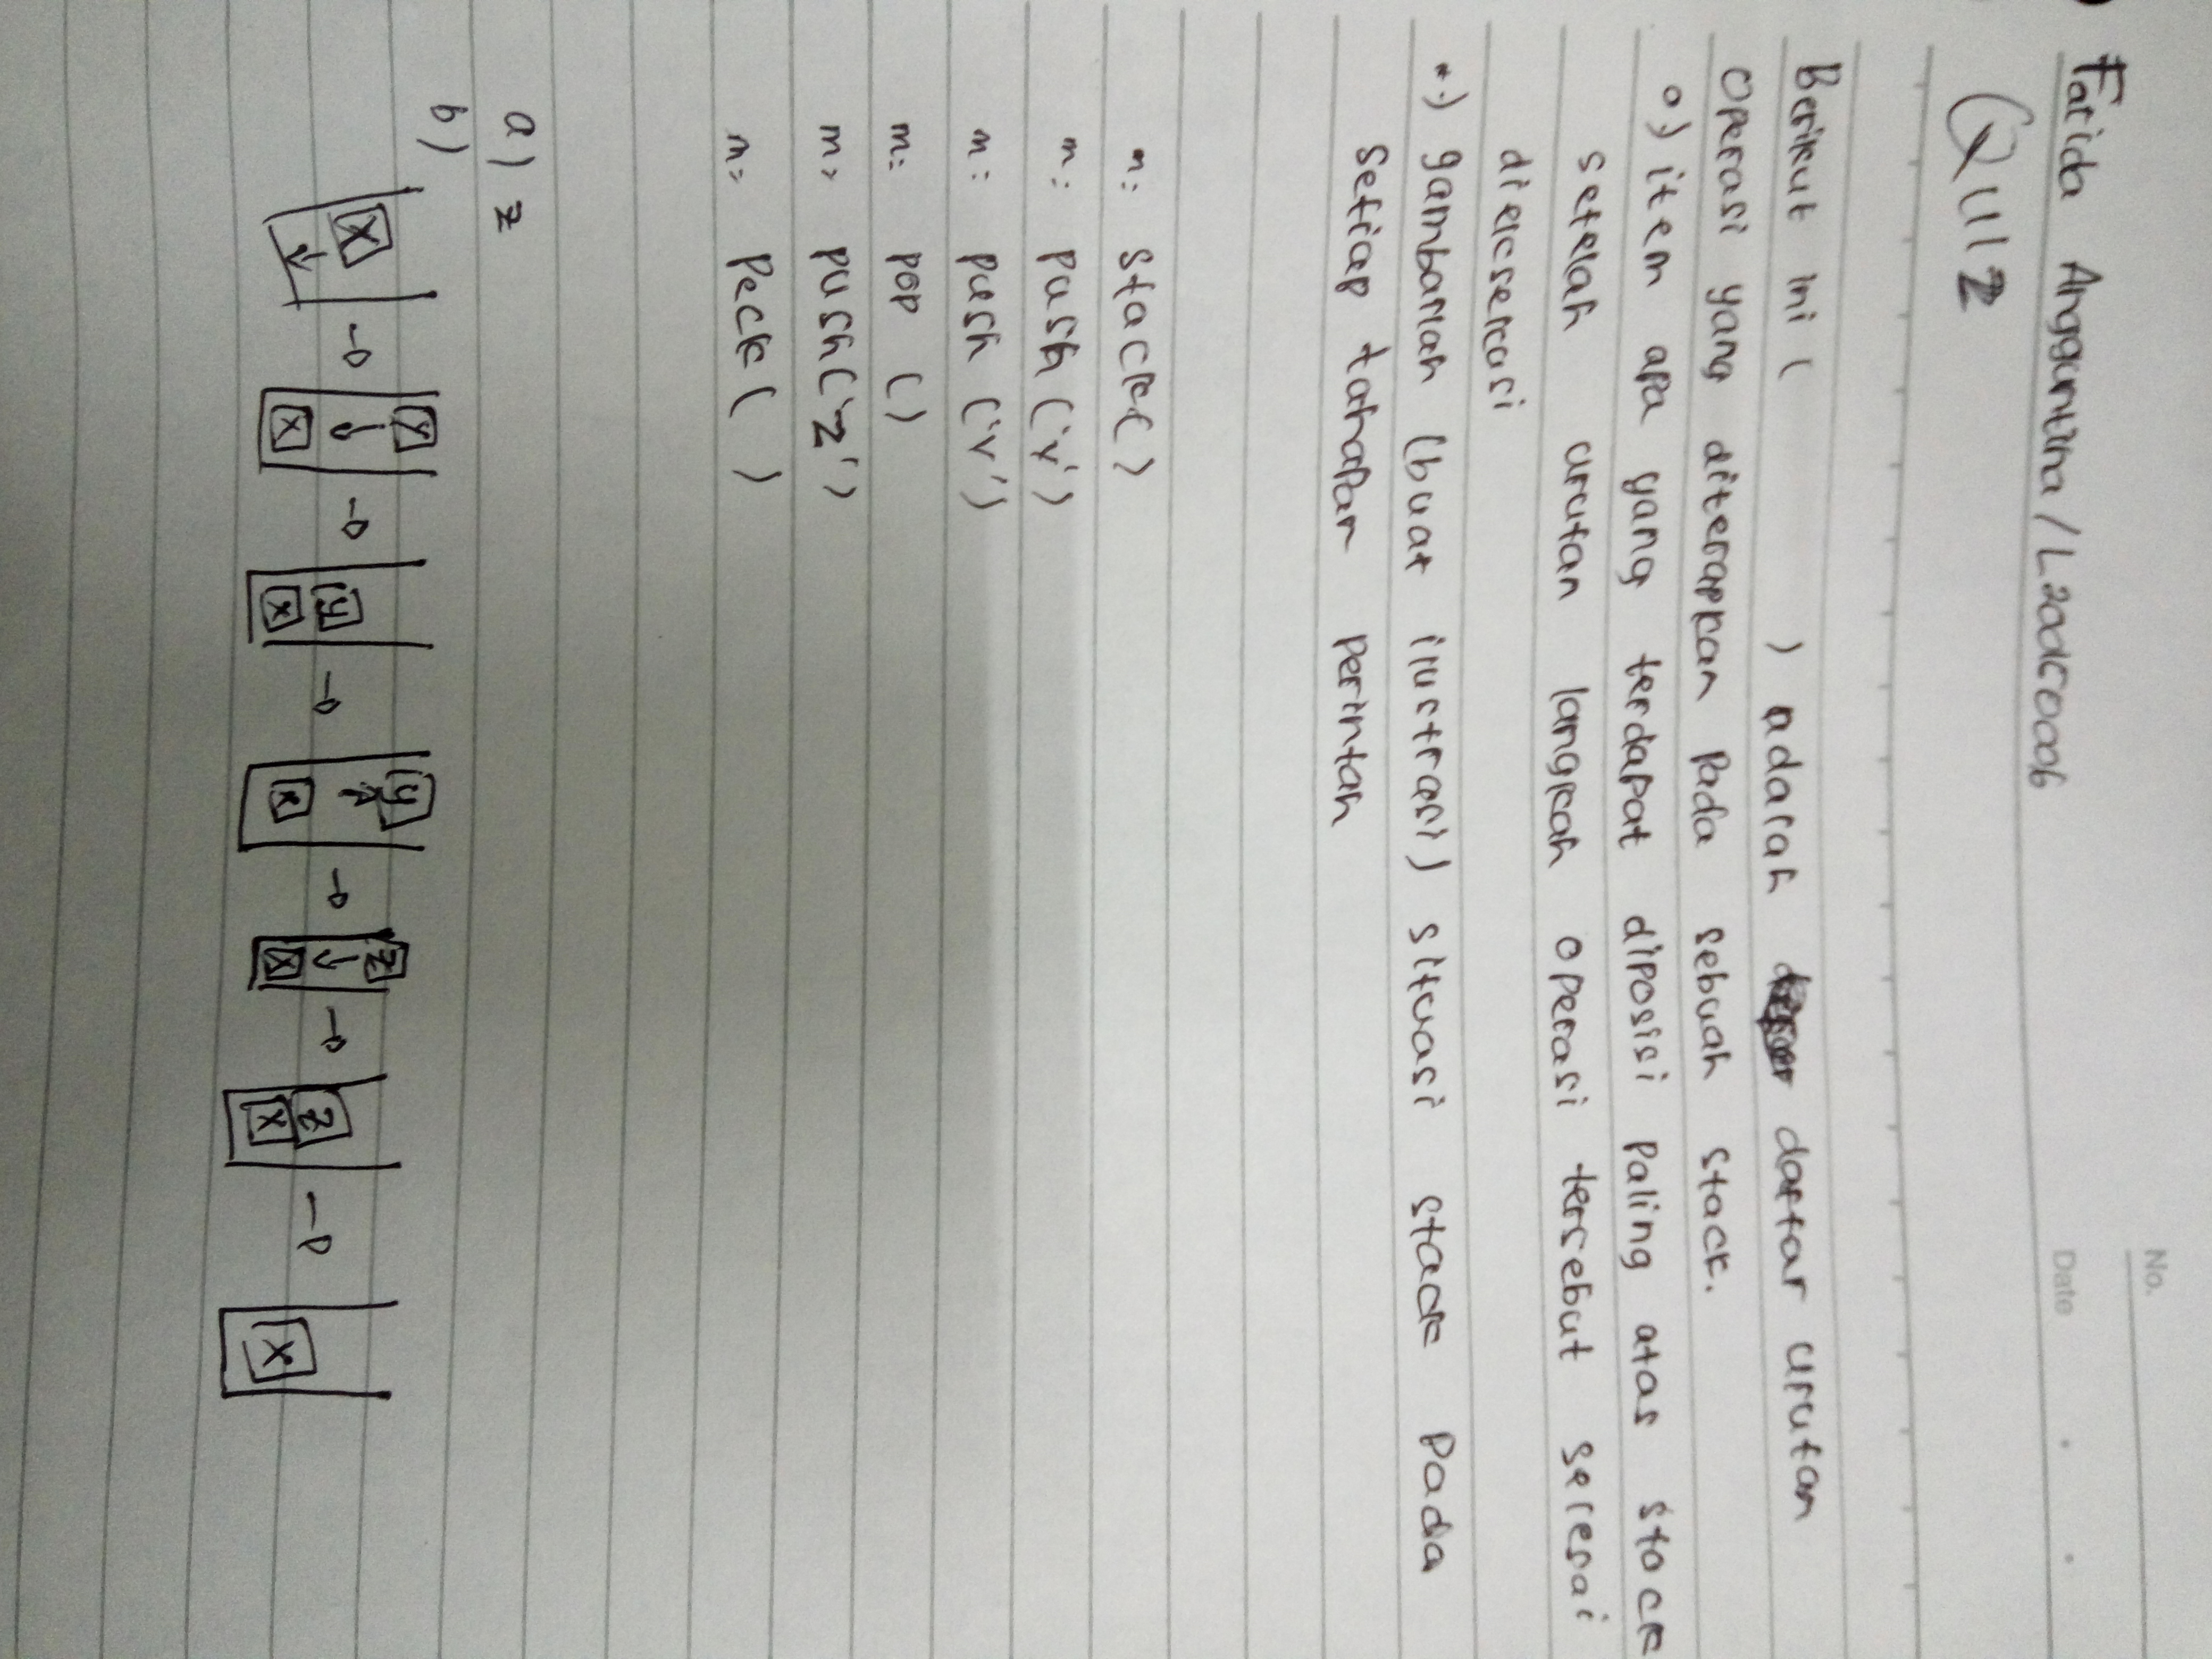 No.
Date
Farida Anggantina / L200C0006
QUIZ
Berikut ini ( ) adalah daftar urutan
operasi yang diterapkan pada sebuah stack.
o) item apa yang terdapat diposisi paling atas stack
setelah urutan langkah operasi tersebut selesai
dieksekusi
*) gambarlah (buat ilustrasi) situasi stack pada
setiap tahapan perintah
m: stack()
m: push ('x')
m: push ('y')
m: pop ()
m: push('z')
m: Peek ( )
a) z
b)
X → y x → y x → y x → z x → z x → x